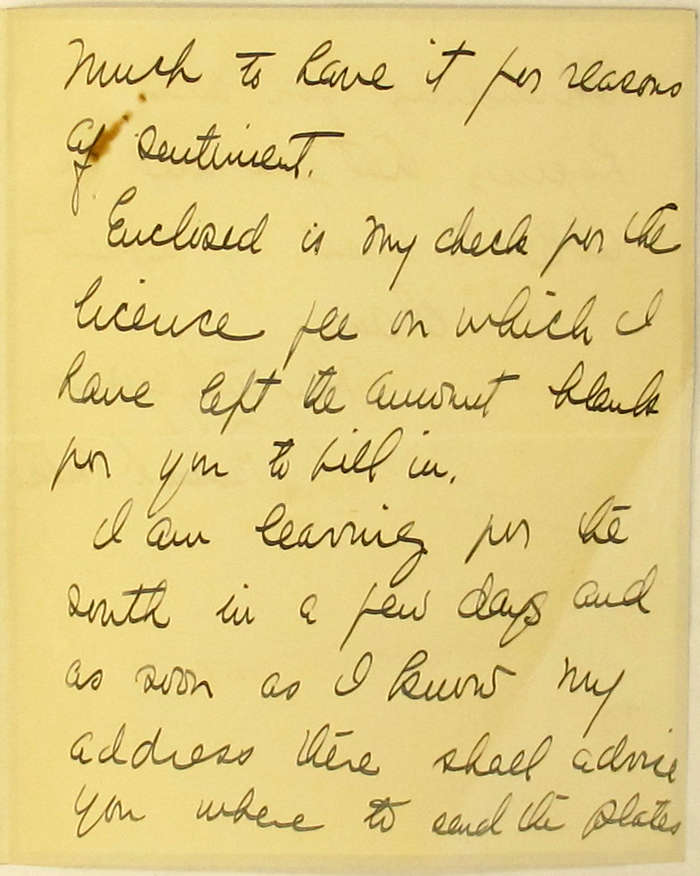 much to have it for reasons
of sentiment.
Enclosed is my check for the
licence fee on which I
have left the amount blank
for you to fill in.
I am leaving for the
south in a few days and
as soon as I know my
address there shall advise
you where to send the plates